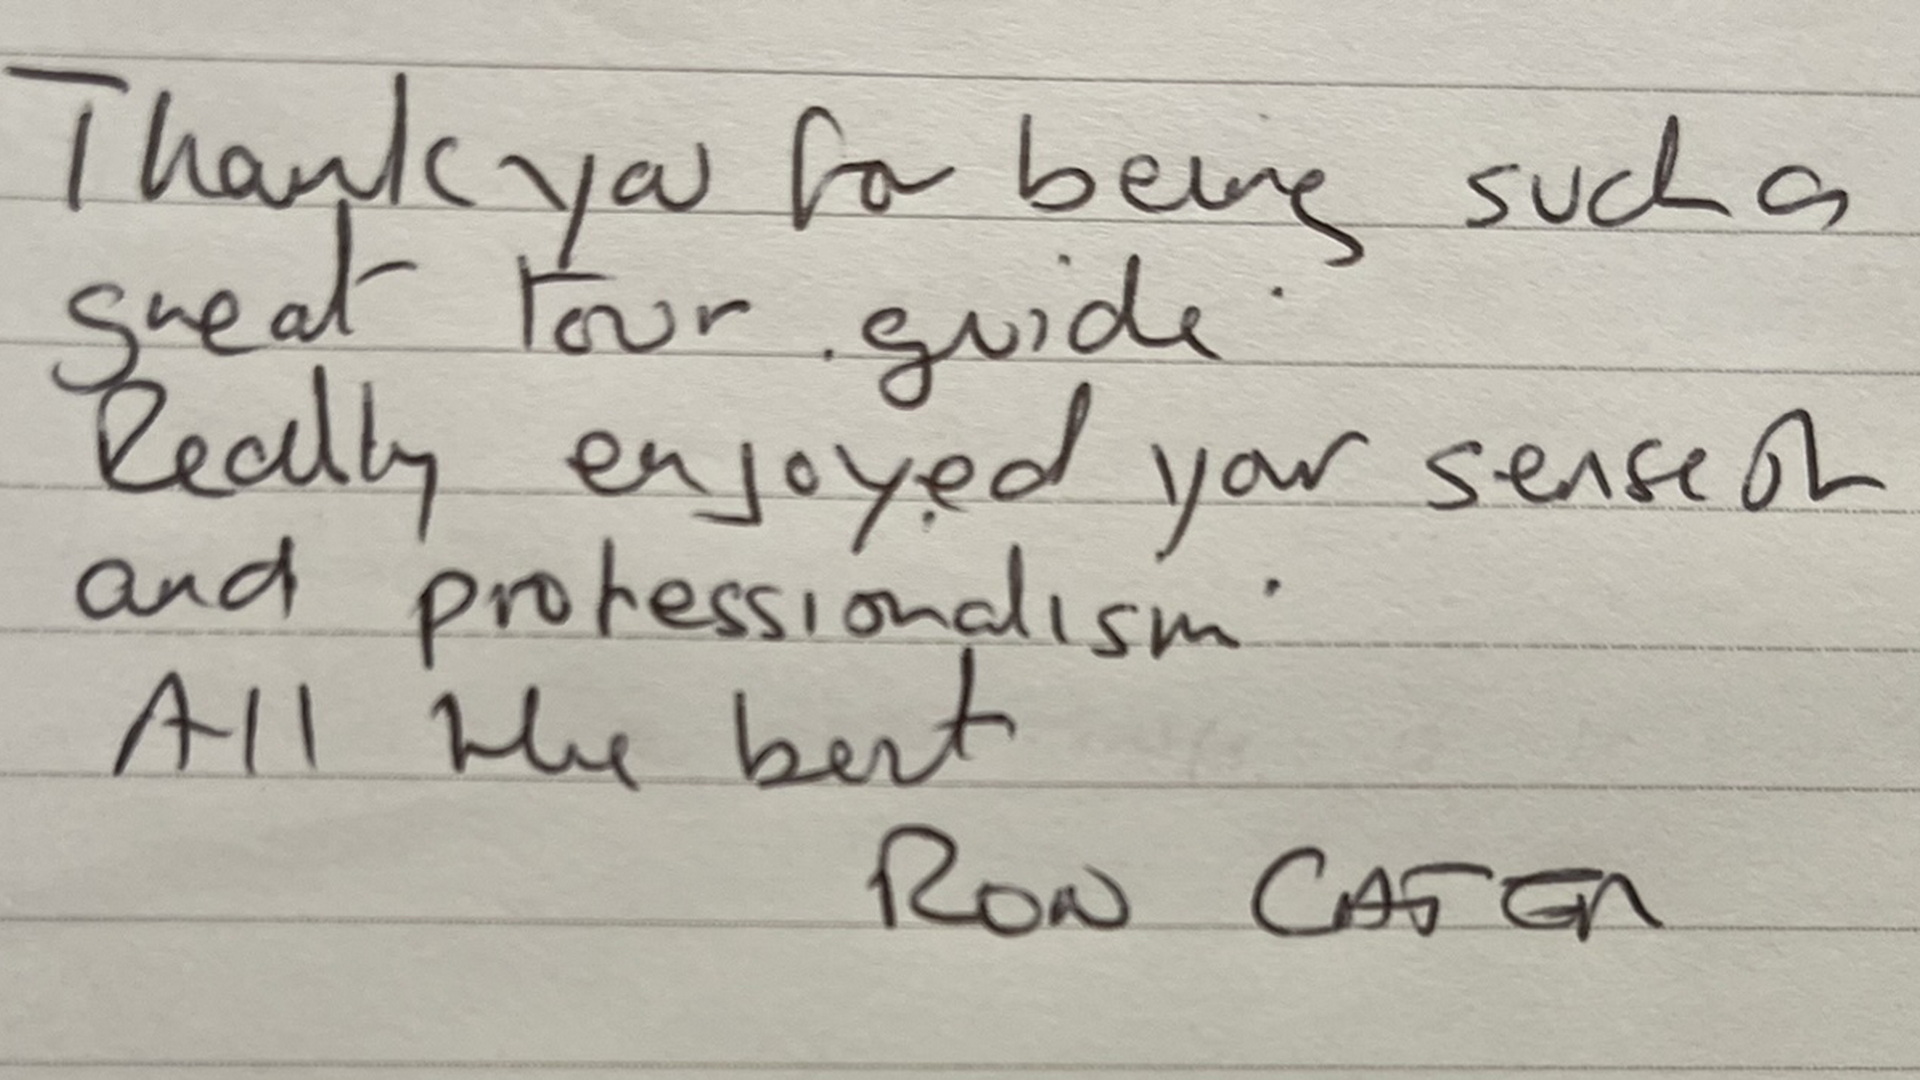 Thank you for being such a
great tour guide.
Really enjoyed your sense of
and professionalism.
All the best
RON CATER